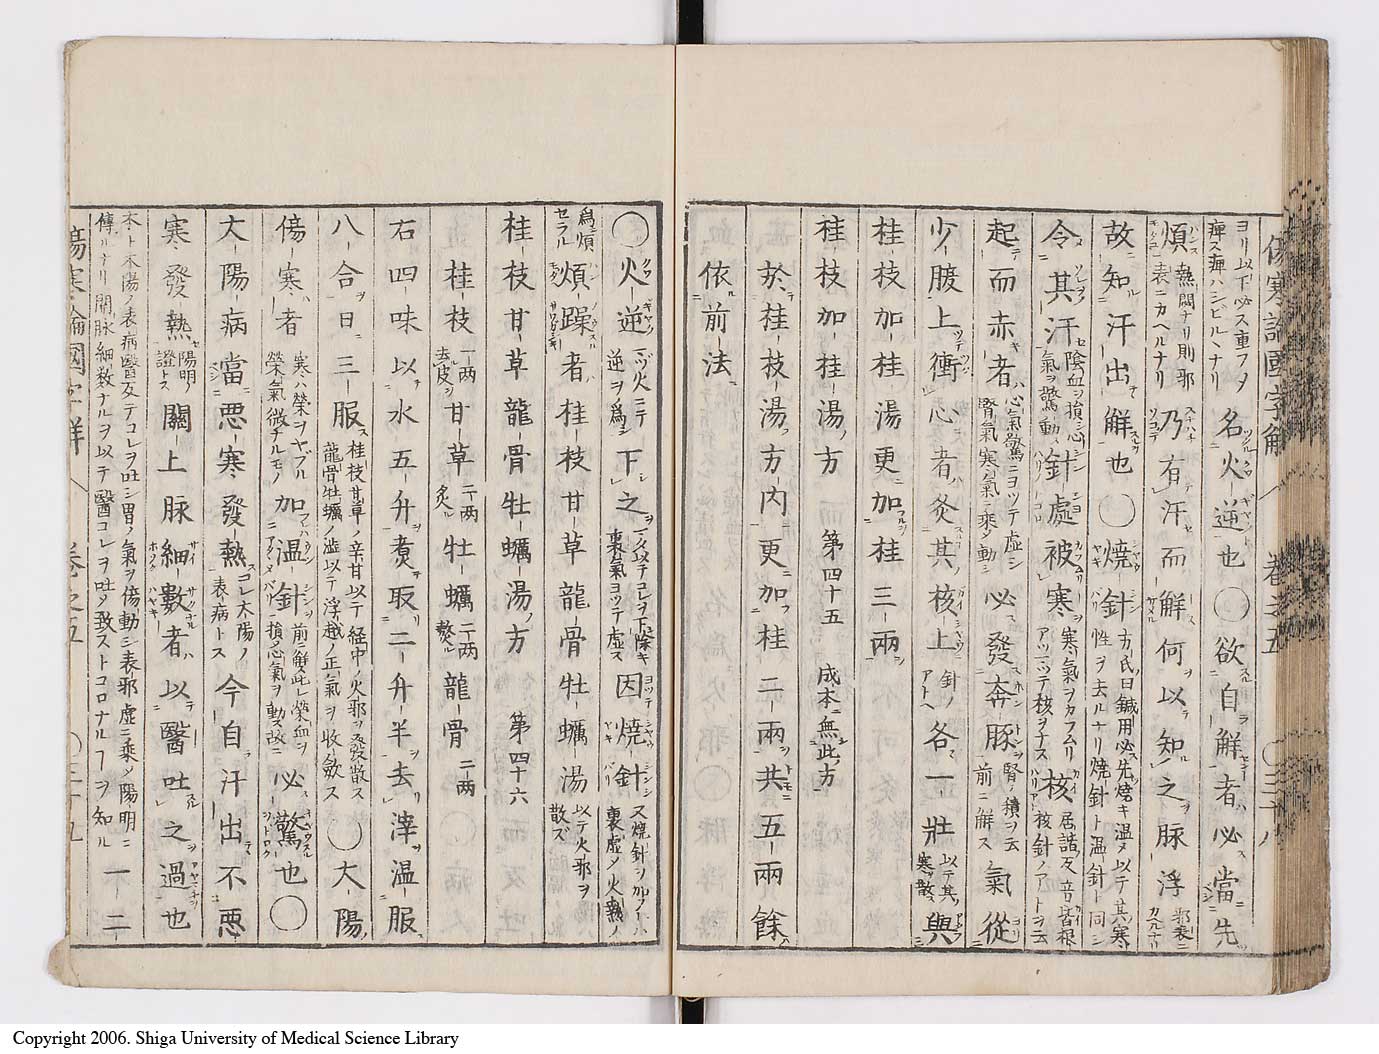 傷寒論國字解 卷之五 〇三十八
ヨリ以下必ス重フタ
痺ス痺ハシビルヽナリ 名火逆也〇欲自解者必當先
煩 熱悶ナリ則邪表ニカヘルナリ 乃有汗而解何以知之脉浮
故知汗出解也〇燒針 方氏曰鍼用必先燒キ温メ以テ其寒性ヲ去ルナリ燒針ト温針ト同シ
令其汗 陰血ヲ損シ心氣ヲ驚動ス 針處被寒 寒氣ヲカフムリアツマツテ核ヲナス 核
起而赤者 心氣驚ニヨツテ虚シ腎氣寒氣ニ乘メ動シ 必發奔豚 腎ノ積ヲ云前ニ解ス 氣從
少腹上衝心者灸其核上 針ノアトヘ 各一壯 以テ其寒ヲ散ス 與
桂枝加桂湯更加桂三兩
桂枝加桂湯方 第四十五 成本無此方
於桂枝湯方内更加桂二兩共五兩餘
依前法
〇火逆 一ツ火ニテ逆ヲ爲シ 下之 二ツ以テコレヲ下除キ裏氣ヨツテ虚ス 因燒針 又燒針ヲ加ノ裏虚メ火熱ノ
爲煩セラル 煩躁者桂枝甘草龍骨牡蠣湯 以テ火邪ヲ散ズ
桂枝甘草龍骨牡蠣湯方 第四十六
桂枝 一兩去皮 甘草 二兩炙 牡蠣 二兩熬 龍骨 二兩
右四味以水五升煮取二升半去滓温服
八合日三服 桂枝甘草ノ辛甘以テ経中ノ火邪ヲ發散ス龍骨牡蠣ノ澁以テ浮越ノ正氣ヲ收斂ス 〇大陽
傷寒者 寒ハ榮ヲヤブル榮氣微ナルモノ 加温針 前ニ解此レ榮血ヲ損メ心氣ヲ動ス故ニ 必驚也〇
大陽病當惡寒發熱 コレ太陽ノ表病トス 今自汗出不惡
寒發熱 陽明證トス 關上脉細數者以醫吐之過也
本ト太陽ノ表病醫反テコレヲ吐シ胃ノ氣ヲ傷動シ表邪虚ニ乘メ陽明ニ
傳ルナリ關脉細数ナルヲ以テ醫コレヲ吐メ致ストコロナルヿヲ知ル 一二
傷寒論國字解 卷之五 〇三十九